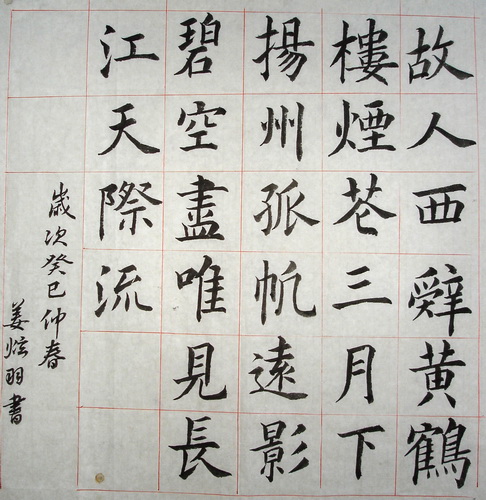 故人西辤黄鶴
樓煙苍三月下
揚州孤帆遠影
碧空盡唯見長
江天際流
歲次癸巳仲春
姜炫羽書